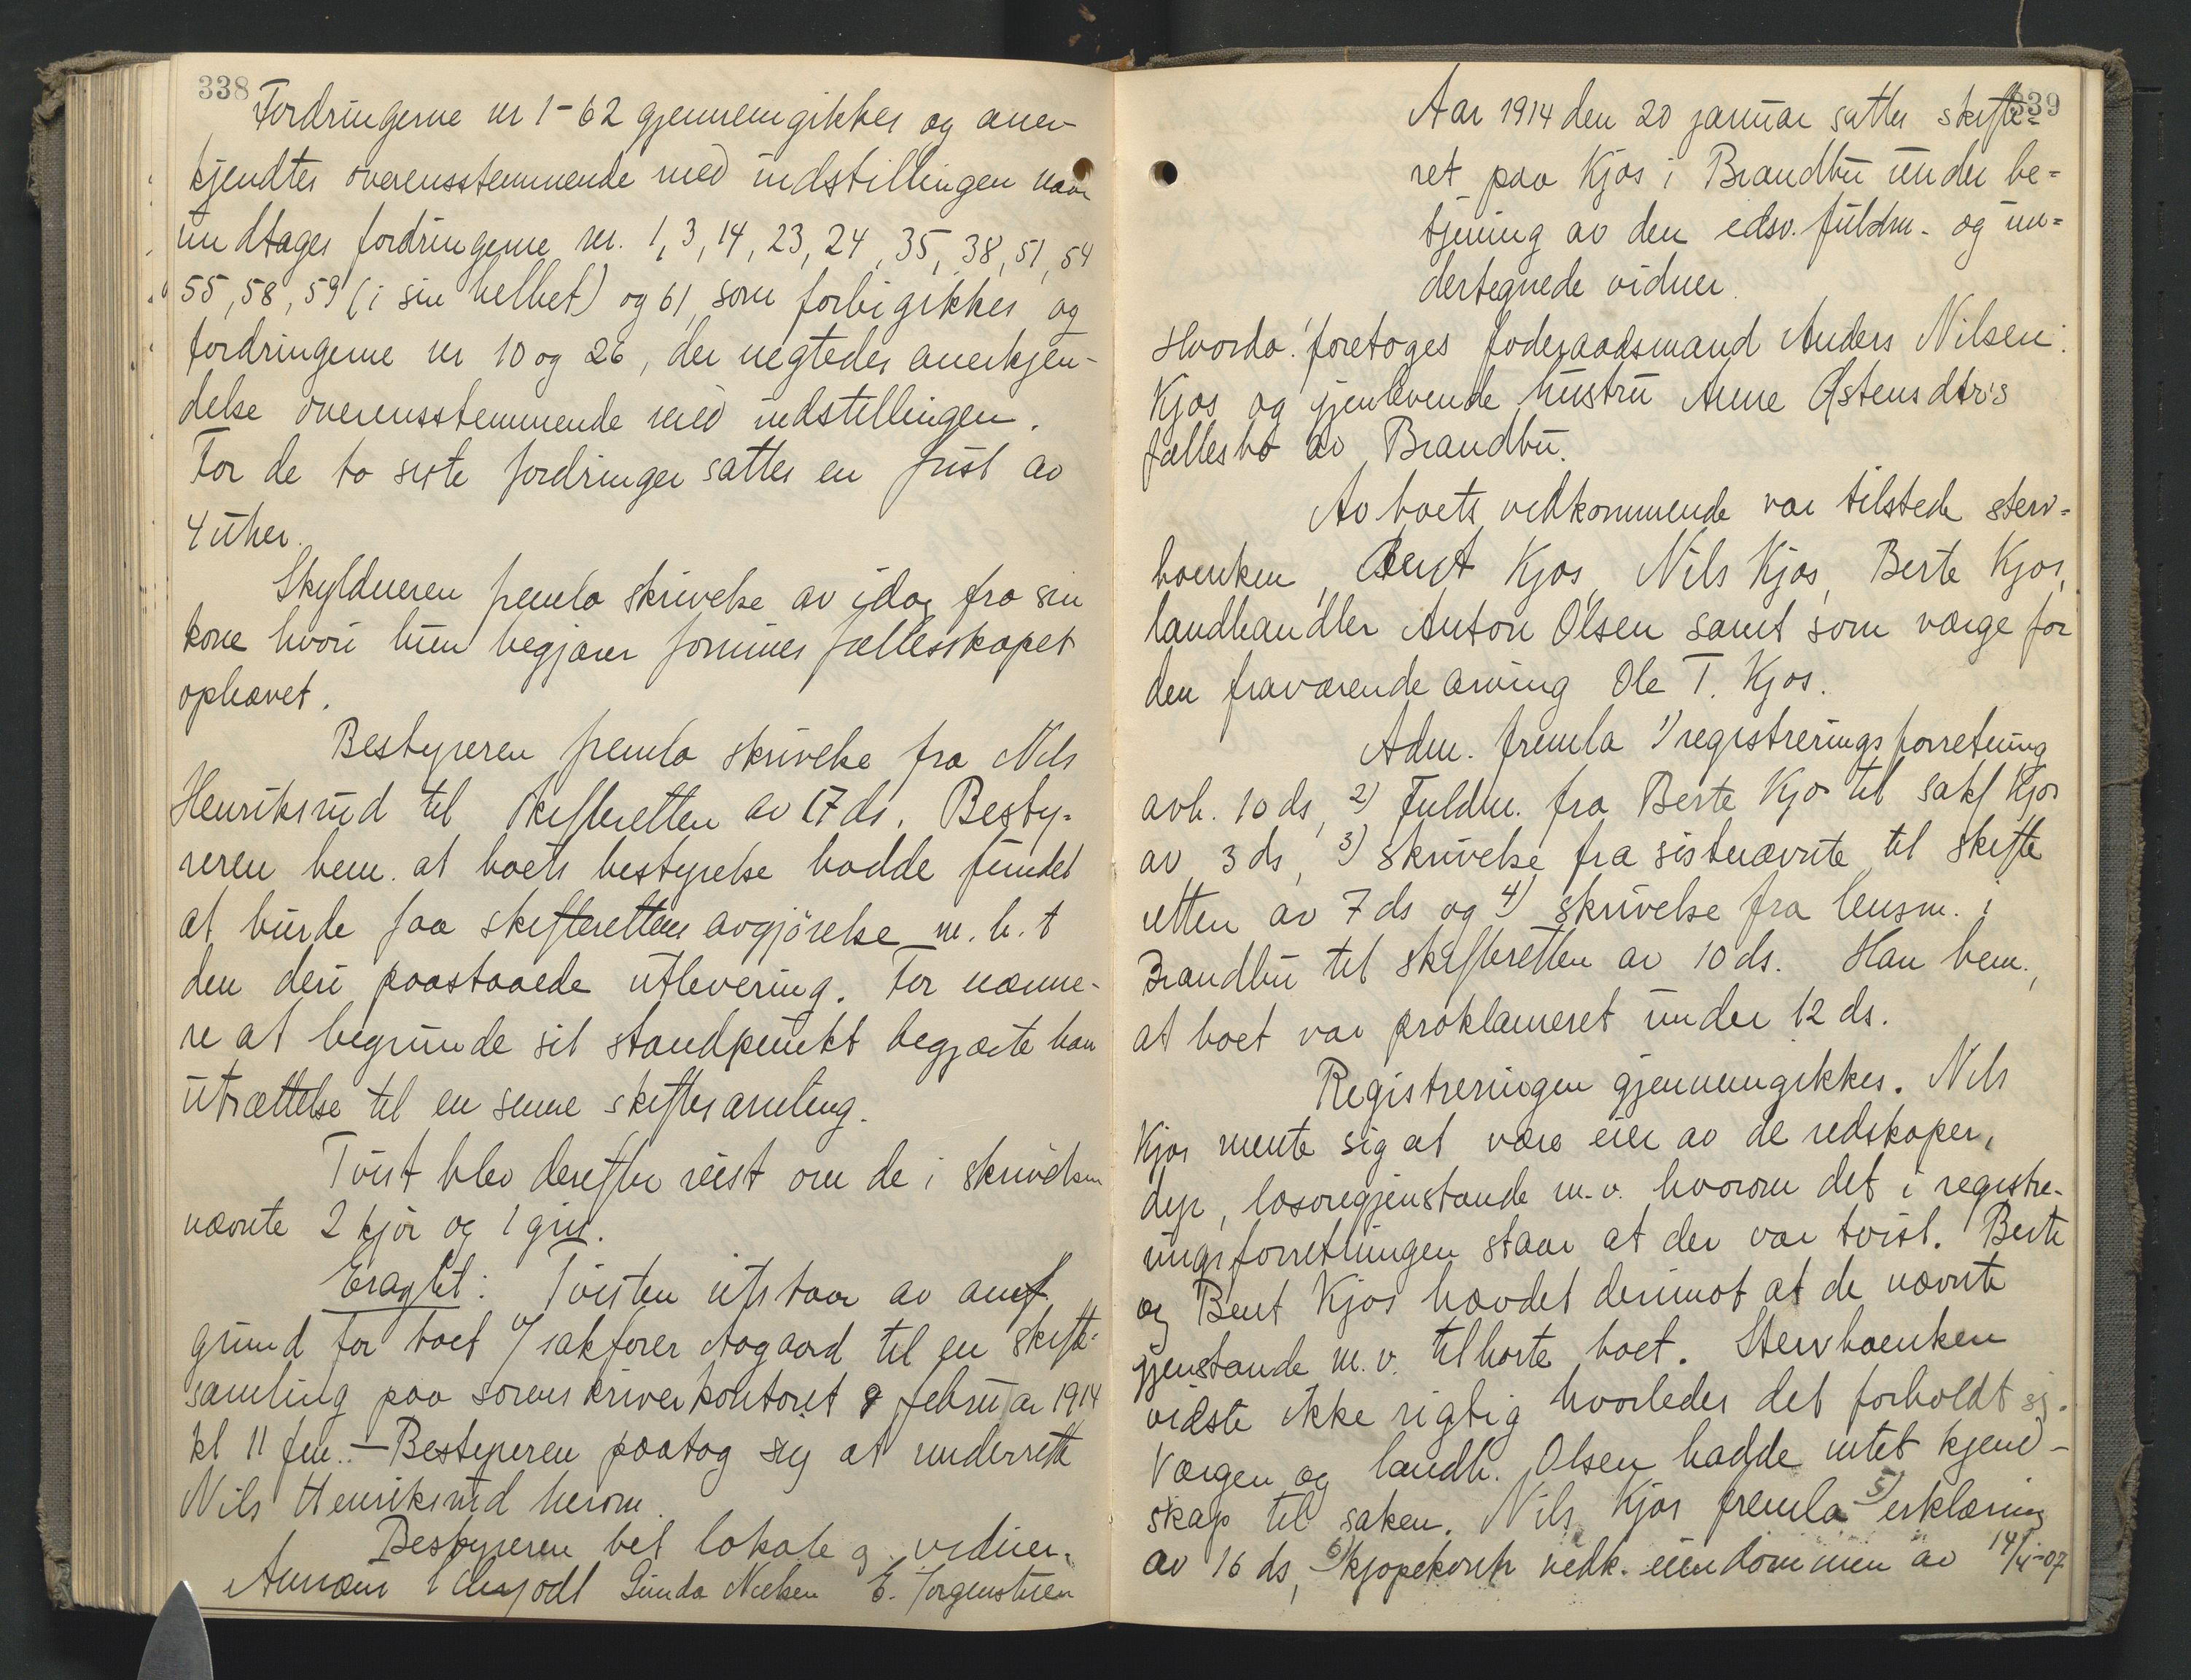 338
Fordringerne nr 1-62 gjennemgikkes og aner-
kjendtes overensstemmende med indstillingen naar
undtages fordringerne nr. 1, 3, 14, 23, 24, 35, 38, 51, 54
55, 58, 59 (i sin helhet) og 61, som forbigikkes og
fordringerne nr 10 og 26, der negtedes anerkjen-
delse overensstemmende med indstillingen.
For de to siste fordringer sattes en frist av
4 uker.
Skyldneren fremla skrivelse av idag fra sin
kone hvori hun begjærer formues fællesskapet
ophævet.
Bestyreren fremla skrivelse fra Nils
Henriksrud til skifteretten av 17 ds. Besty-
reren bem. at boets bestyrelse hadde fundet
at burde faa skifterettens avgjörelse m. h. t
den deri paastaaede utlevering. For nærme-
re at begrunde sit standpunkt begjærte han
utsættelse til en senere skiftesamling.
Tvist blev derefter reist om de i skrivelsen
nævnte 2 kjör og 1 gris.
Eragtet: Tvisten utstaar av anf.
grund for boet v/ sakfører Aagaard til en skifte-
samling paa sorenskriverkontoret 8 februar 1914
kl 11 fm. - Bestyreren paatog sig at underrette
Nils Henriksrud herom.
Bestyreren bet lokale og vidner.
Gunda Nielsen E. Jørgensen
339
Aar 1914 den 20 januar sattes skifte-
ret paa Kjos i Brandbu under be-
tjening av den edsv. fuldm. og un-
dertegnede vidner.
Hvorda: foretoges foderaadsmand Anders Nilsen
Kjos og gjenlevende hustru Anne Østensdtr's
fællesbo av Brandbu.
Av boets vedkommende var tilstede sterv-
boenken, Bent Kjos, Nils Kjos, Berte Kjos,
landhandler Anton Olsen samt som værge for
den fraværende arving Ole T. Kjos.
Adm. fremla 1) registreringsforretning
avh. 10 ds, 2) Fuldm. fra Berte Kjos til sakf Kjos
av 3 ds, 3) skrivelse fra sistnævnte til skifte
retten av 7 ds og 4) skrivelse fra lensm. i
Brandbu til skifteretten av 10 ds. Han bem.,
at boet var proklameret under 12 ds.
Registreringen gjennemgikkes. Nils
Kjos mente sig at være eier av de redskaper,
dyr, løsøregjenstande m. v. hvorom det i registre-
ringsforretningen staar at der var tvist. Berte
og Bent Kjos hævdet derimot at de nævnte
gjenstande m. v. tilhørte boet. Stervboenken
vidste ikke rigtig hvorledes det forholdt sig.
Værgen og landh. Olsen hadde intet kjend-
skap til saken. Nils Kjos fremla 5) erklæring
av 16 ds, 6) kjøpekontr vedk. eiendommen av 14/4-07